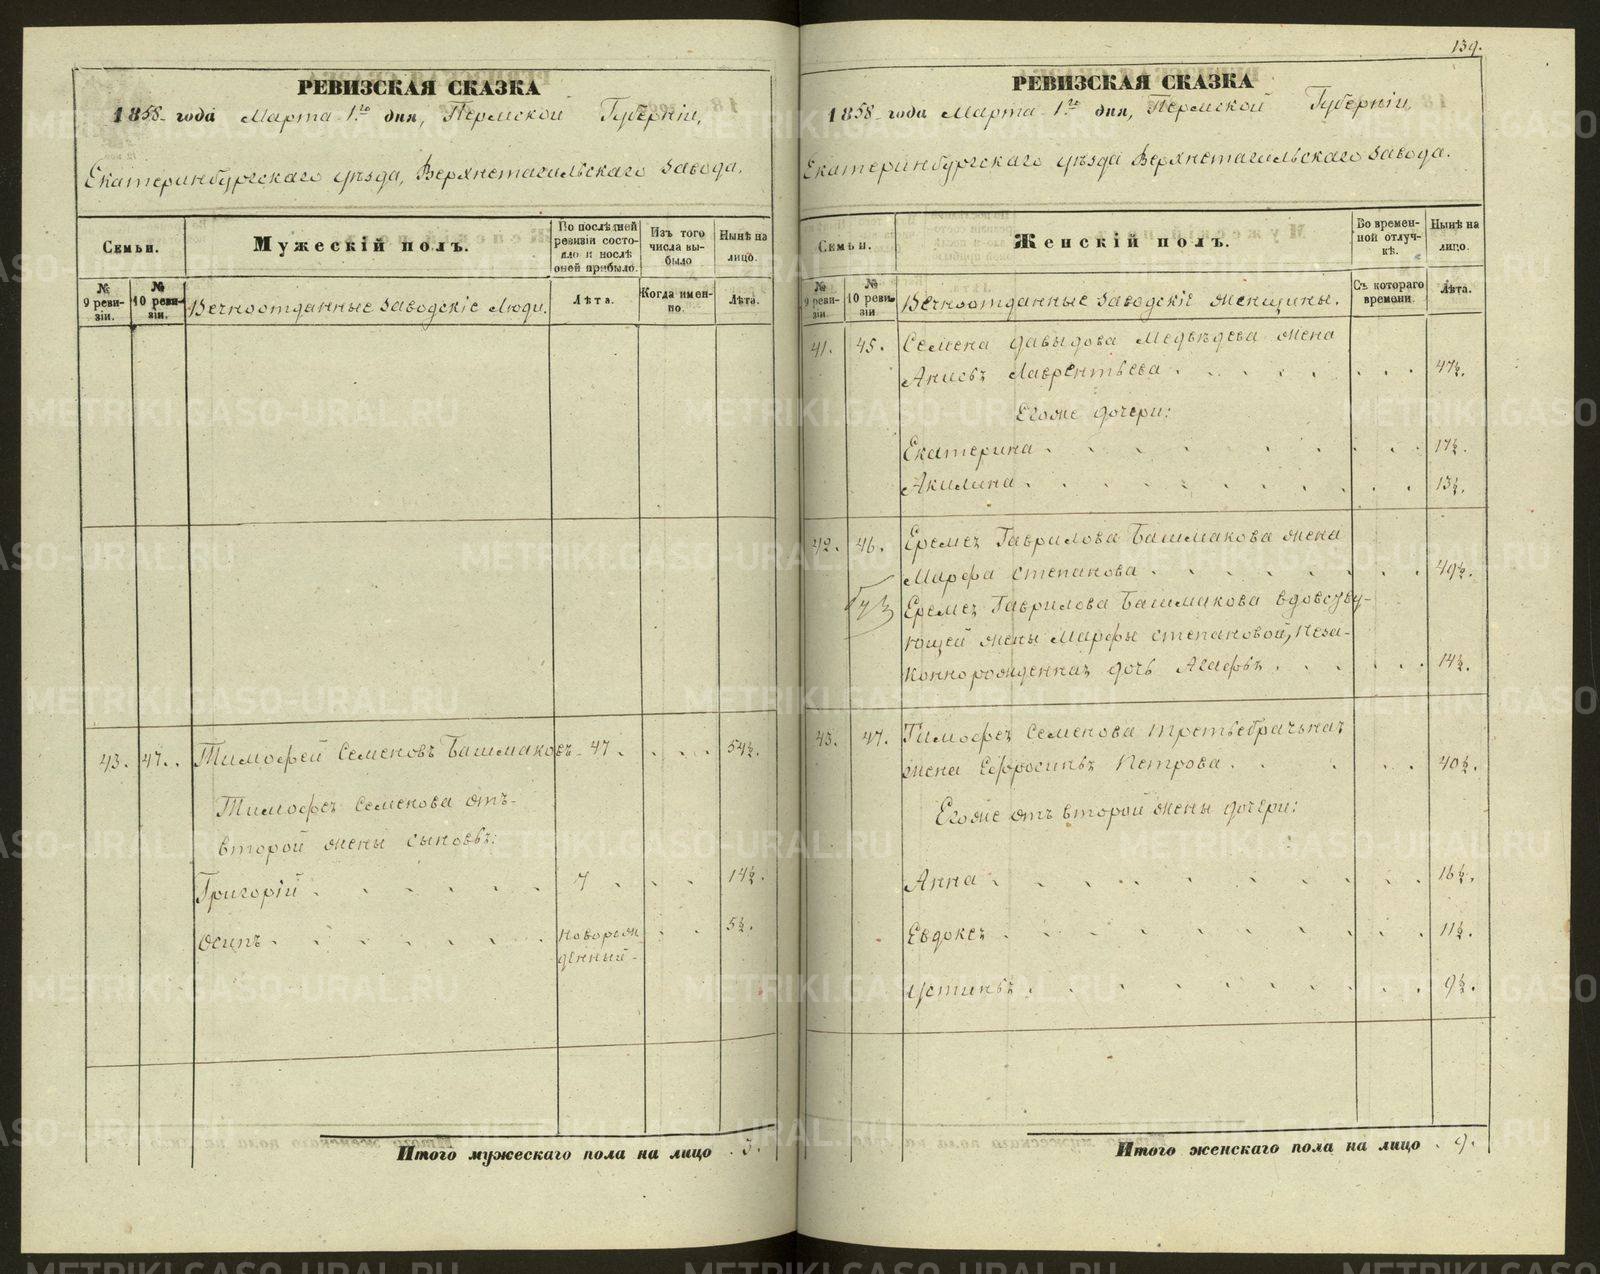 139.
РЕВИЗСКАЯ СКАЗКА
1858 года Марта 1го дня, Пермской Губернiи,
Екатеринбургскаго уѣзда, Верхнетагильскаго завода.
Семьи.
Мужескiй полъ.
По послѣдней ревизiи состояло и послѣ оней прибыло.
Изъ того числа выбыло
Нынѣ на лицо.
№ 9 ревизiи.
№ 10 ревизiи.
Вечноотданные заводскiе Люди.
Лѣта.
Когда именно.
Лѣта.
43. 47. Тимофей Семеновъ Башмаковъ 47. 54½.
Тимофея Семенова отъ
второй жены сыновья:
Григорiй 7 14½.
Осипъ новорожденный 5½.
Итого мужескаго пола на лицо 3.
РЕВИЗСКАЯ СКАЗКА
1858 года Марта 1го дня, Пермской Губернiи,
Екатеринбургскаго уѣзда Верхнетагильскаго завода.
Семьи.
Женскiй полъ.
Во временной отлучкѣ.
Нынѣ на лицо.
№ 9 ревизiи
№ 10 ревизiи
Вечноотданные заводскiе женщины.
Съ котораго времени.
Лѣта.
41. 45. Семена Давыдова Медвѣдева жена
Анисья Лаврентьева 47½.
Егоже дочери:
Екатерина 17½.
Акилина 13½.
42. 46. Еремея Гаврилова Башмакова жена
Марфа Степанова 49½.
Еремея Гаврилова Башмакова вдовству-
ющей жены Марфы Степановой, неза-
коннорожденная дочь Агафья 14½.
43. 47. Тимофея Семенова третьебрачная
жена Ефросинья Петрова 40½.
Егоже отъ второй жены дочери:
Анна 16½.
Евдокея 11½.
Устинья 9½.
Итого женскаго пола на лицо 9.
METRIKI.GASO-URAL.RU